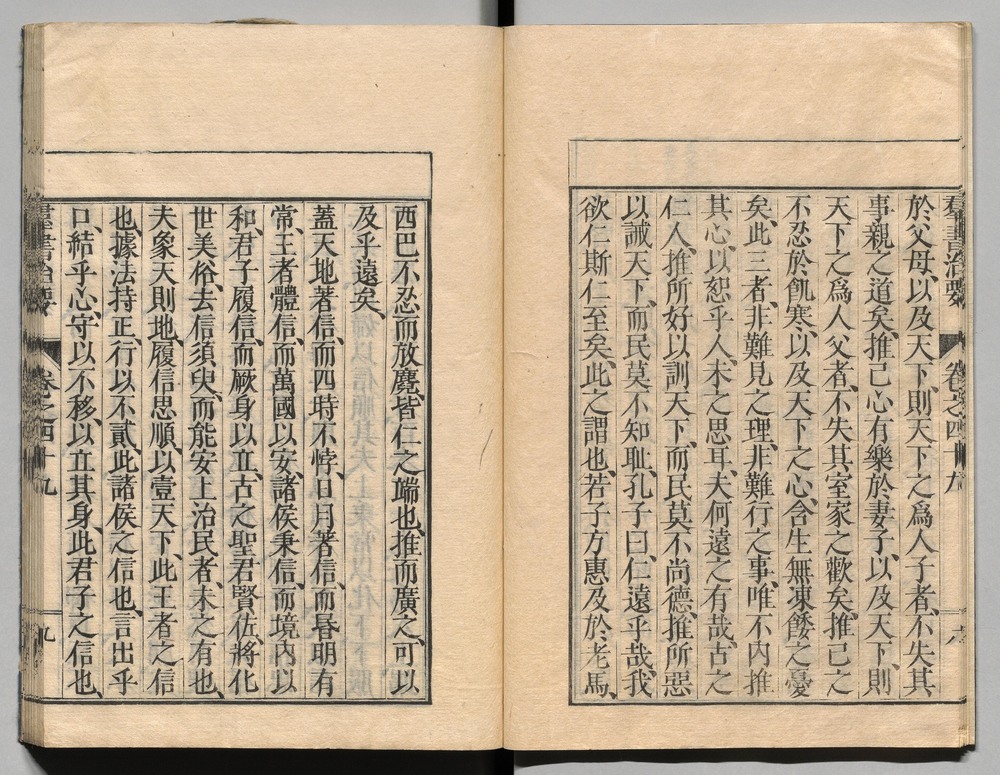 羣書治要 卷之四十九 八
於父母、以及天下、則天下之爲人子者、不失其
事親之道矣、推己心有樂於妻子、以及天下、則
天下之爲人父者、不失其室家之歡矣、推己之
不忍於飢寒、以及天下之心、含生無凍餧之憂
矣、此三者、非難見之理、非難行之事、唯不內推
其心、以恕乎人、未之思耳、夫何遠之有哉、古之
仁人、推所好以訓天下、而民莫不尚德、推所惡
以誡天下、而民莫不知耻、孔子曰、仁遠乎哉、我
欲仁斯仁至矣、此之謂也、若子方惠及於老馬、
西巴不忍而放麑、皆仁之端也、推而廣之、可以
及乎遠矣、
蓋天地著信、而四時不悖、日月著信、而昏明有
常、王者體信、而萬國以安、諸侯秉信、而境內以
和、君子履信、而厥身以立、古之聖君賢佐、將化
世美俗、去信須臾、而能安上治民者、未之有也、
夫象天則地、履信思順、以壹天下、此王者之信
也、據法持正、行以不貳、此諸侯之信也、言出乎
口、結乎心、守以不移、以立其身、此君子之信也、
羣書治要 卷之四十九 九